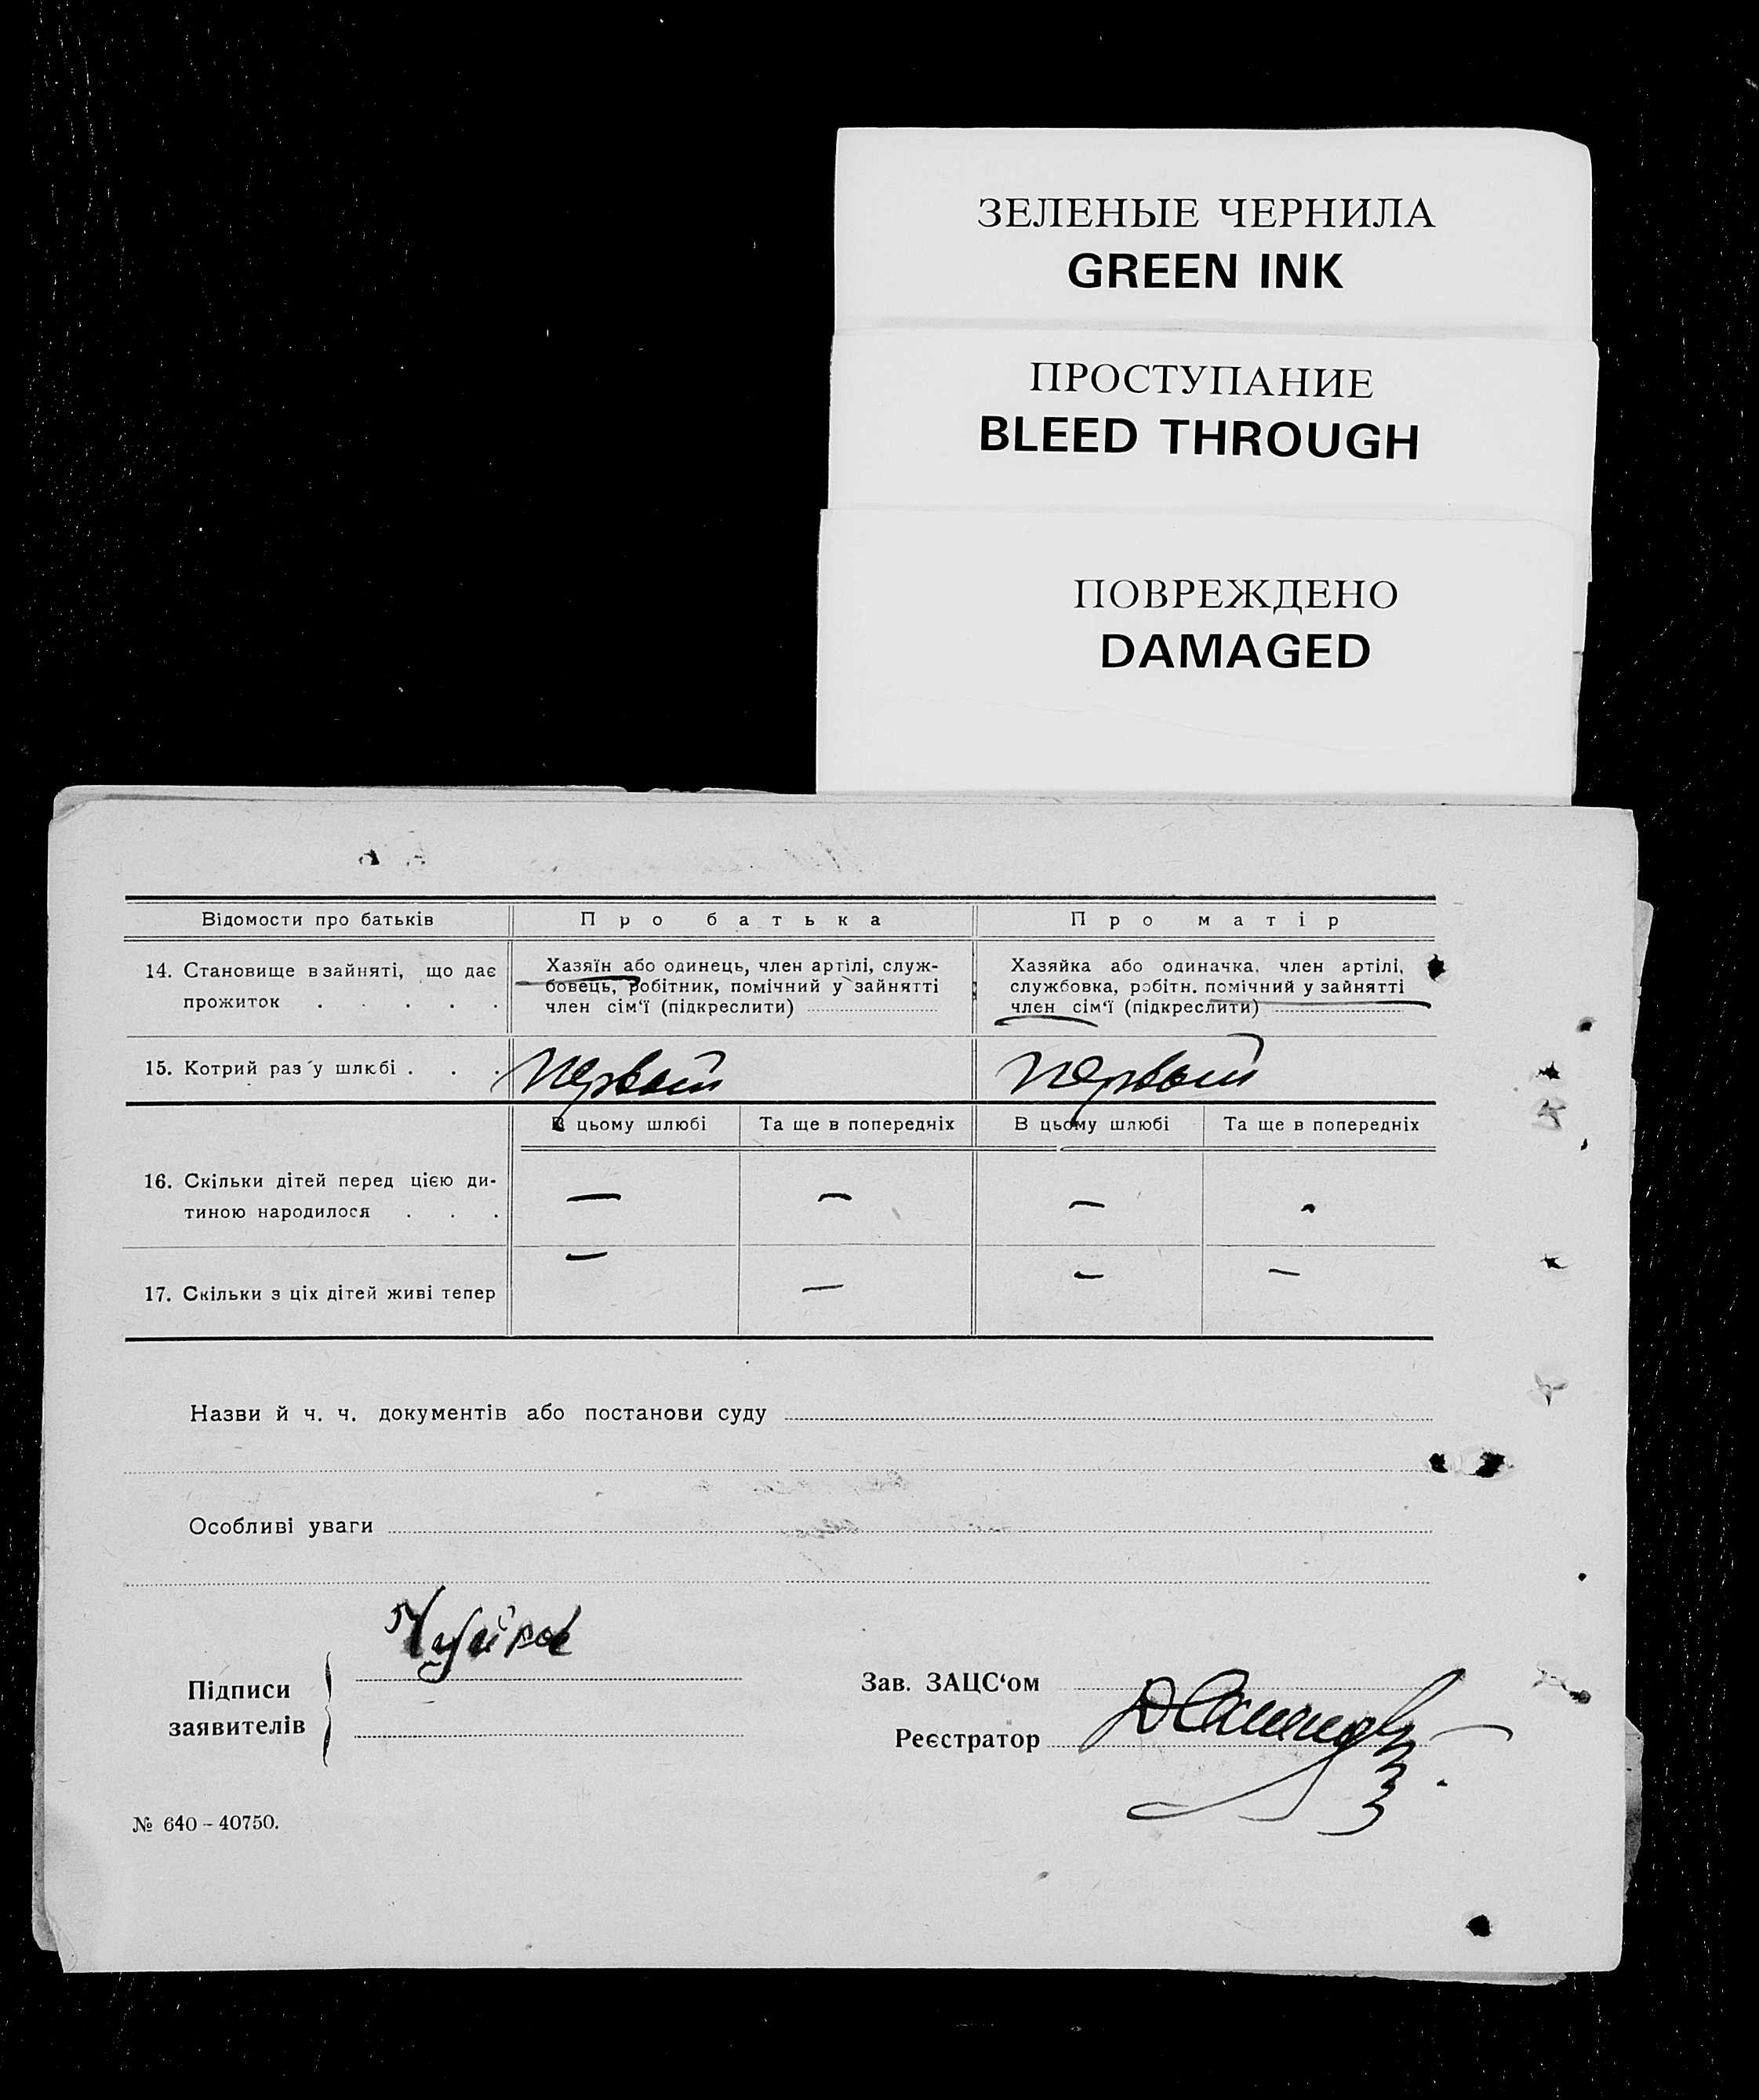 ЗЕЛЕНЫЕ ЧЕРНИЛА
GREEN INK
ПРОСТУПАНИЕ
BLEED THROUGH
ПОВРЕЖДЕНО
DAMAGED
Відомости про батьків
Про батька
Про матір
14. Становище в зайняті, що дає
прожиток . . . . .
Хазяїн або одинець, член артілі, служ-
бовець, робітник, помічний у зайнятті
член сім‘ї (підкреслити)
Хазяйка або одиначка, член артілі,
службовка, робітн. помічний у зайнятті
член сім‘ї (підкреслити)
15. Котрий раз у шлюбі . . .
Первый
Первый
В цьому шлюбі
Та ще в попередніх
В цьому шлюбі
Та ще в попередніх
16. Скільки дітей перед цією ди-
тиною народилося . . .
— — — —
17. Скільки з ціх дітей живі тепер
— — — —
Назви й ч. ч. документів або постанови суду
Особливі уваги
Підписи
заявителів
Зав. ЗАЦС‘ом
Реєстратор
№ 640 – 40750.